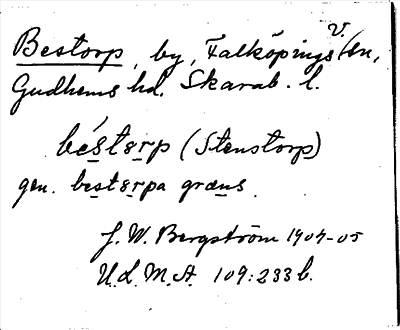 Bestorp, by, Falköpings v. sn,
Gudhems hd, Skarab. l.
béstɜrp (Stenstorp)
gen. bestɜrpa græns.
J. W. Bergström 1904-05
U.L.M.A. 109:233 b.